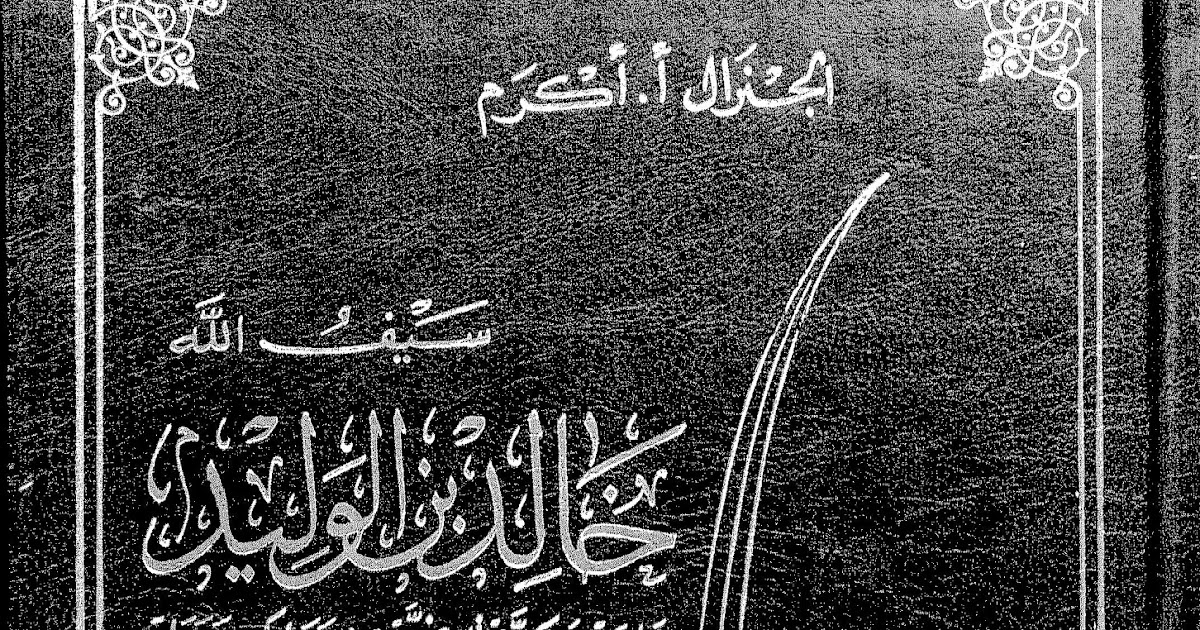 الجنرال أ. أكرم
سيف الله
خالد بن الوليد